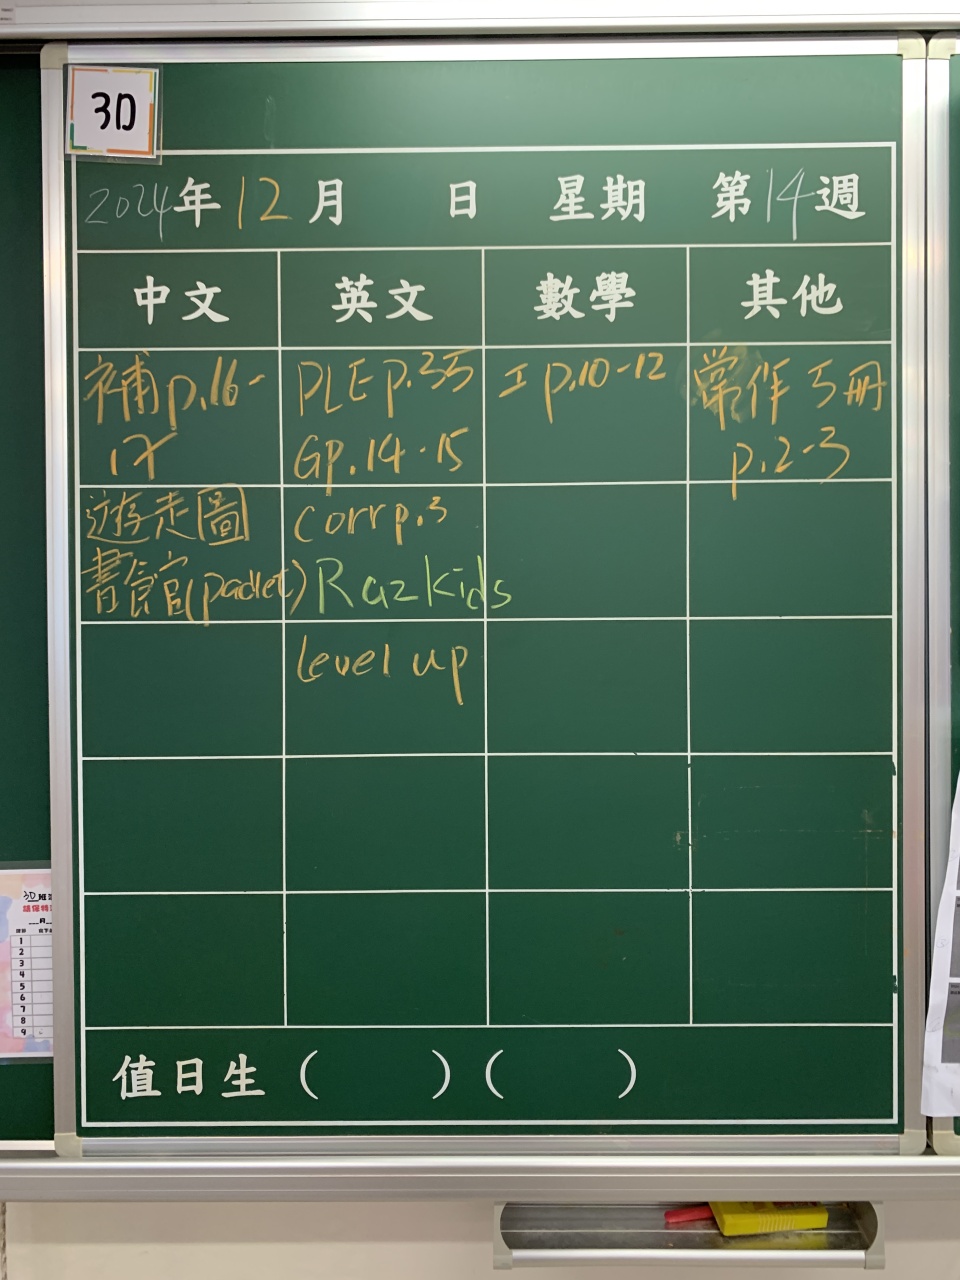 3D
2024年12月 日 星期 第14週
中文 英文 數學 其他
補p.16-
17
PLE p.35
GP.14-15
工p.10-12
常作手冊
p.2-3
遊走圖
書館(padlet)
Corr p.3
Raz kids
level up
值日生 ( ) ( )
3D班
月
1
2
3
4
5
6
7
8
9